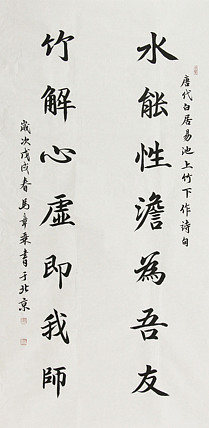 唐代白居易池上竹下作诗句
水能性澹為吾友
竹解心虛即我師
歲次戊戌春馬書于北京